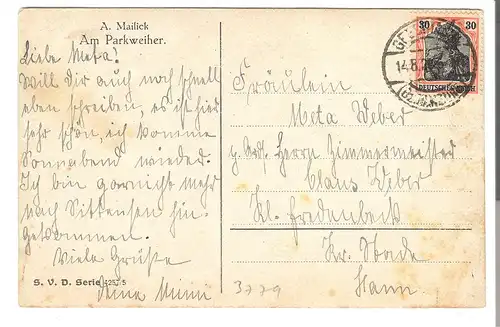 A. Mailick
Am Parkweiher.
Liebe Meta!
Will Dir auch noch schnell
eben schreiben, es ist hier
sehr schön, ich komme
Sonnabend wieder.
Ich bin garnicht mehr
nach Sittensen hin-
gekommen.
Viele Grüße
Deine Mimi
S. V. D. Serie 5
30 30
14.8.20
DEUTSCHES REICH
Fräulein
Meta Weber
Herrn Zimmermeister
Claus Weber
Kl. Fredenbeck
Kr. Stade
Hann.
3779